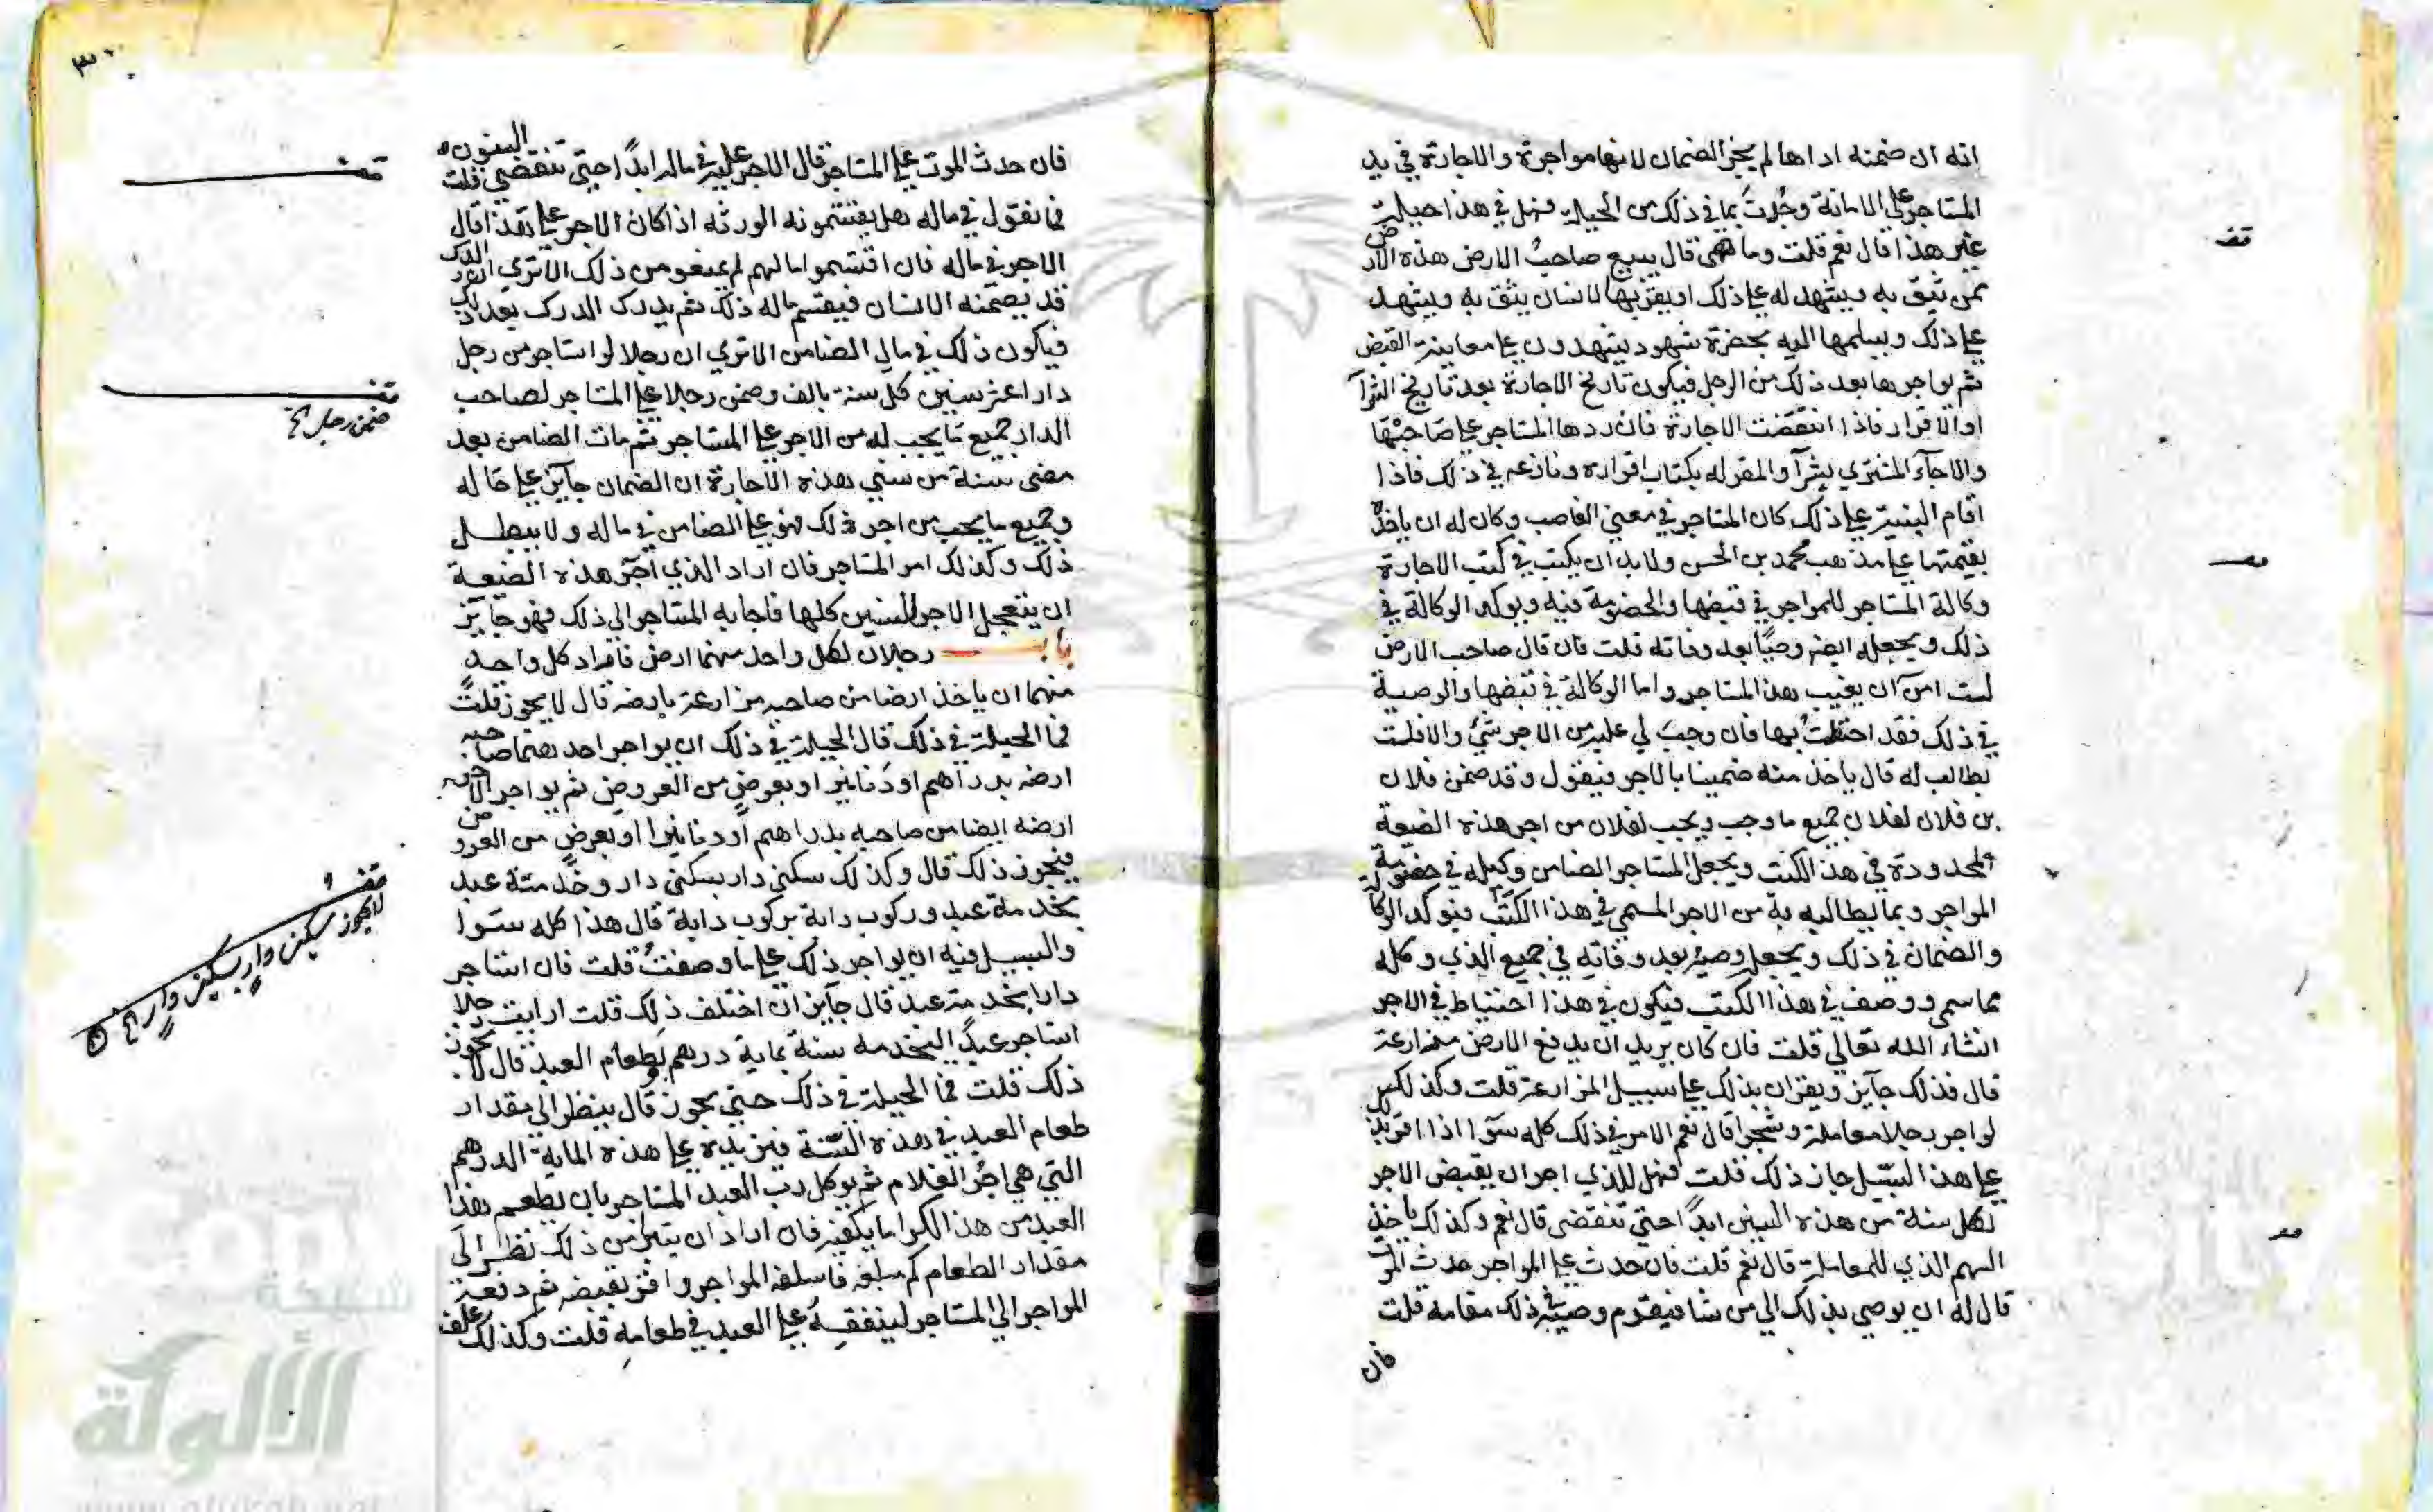 انه ان ضمنه اداها لم يجز الضمان لانها مواجرة والاجارة في يد
المستاجر علي الامانة وحدث بما في ذلك من الحيلة فهل في هذا حيلة
غير هذا قال نعم قلت وما هي قال يبيع صاحب الارض هذه الارض
ممن يثق به ويشهد له علي ذلك او يقر بها لانسان يثق به ويشهد
علي ذلك ويسلمها اليه بحضرة شهود يشهدون علي معاينة القبض
ثم يواجرها بعد ذلك من الرجل فيكون تاريخ الاجارة بعد تاريخ الشرآ
او الاقرار فاذا انتقضت الاجارة فان ردها المستاجر علي صاحبها
والا جآء المشتري بشرآ والمقر له بكتاب اقراره ونازعه في ذلك فاذا
اقام البينة علي ذلك كان المستاجر في معني الغاصب وكان له ان ياخذه
بقيمتها علي مذهب محمد بن الحسن ولا بد ان يكتب في كتب الاجارة
وكالة المستاجر للمواجر في قبضها والخصومة فيه ويوكد الوكالة في
ذلك ويجعله ايضا وصيا بعد وفاته قلت فان قال صاحب الارض
لست امن ان يغيب هذا المستاجر واما الوكالة في قبضها والوصية
في ذلك فقد احتطت بها فان وجب لي عليه من الاجر شئ والا فلست
بطالب له قال ياخذ منه ضمينا بالاجر فيقول وقد ضمن فلان
بن فلان لفلان جميع ما وجب ويجب لفلان من اجر هذه الضيعة
المحدودة في هذا الكتب ويجعل المستاجر الضامن وكيله في خصومة
المواجر وبما يطالبه به من الاجر المسمي في هذا الكتب ويوكد الوكالة
والضمان في ذلك ويجعله وصيه بعد وفاته في جميع الذي وكله
مما سمي ووصف في هذا الكتب فيكون في هذا احتياط في الاجر
انشاء الله تعالي قلت فان كان يريد ان يدفع الارض مزارعة
قال فذلك جآيز ويقران بذلك علي سبيل المزارعة قلت وكذلك
لو اجر رجلا معاملة وشجرا قال نعم الامر في ذلك كله سوآ اذا اقر بذلك
علي هذا السبيل جاز ذلك قلت فهل للذي اجر ان يقبض الاجر
لكل سنة من هذه السنين ابدا حتي تنقضي قال نعم وكذلك ياخذ
السهم الذي للمعاملة قال نعم قلت فان حدث علي المواجر حدث الموت
قال له ان يوصي بذلك الي من شا فيقوم وصيه في ذلك مقامه قلت
فان
فان حدث الموت علي المستاجر قال الاجر عليه في ماله ابدا حتي تنقضي السنون قلت
فما نقول في ماله هل يقتسمونه الورثه اذا كان الاجر علي هذا قال
الاجر في ماله فان اقتسموا مالهم لم يمنعو من ذلك الا تري ان الدرك
قد يضمنه الانسان فيقسم ماله ذلك ثم يدرك الدرك بعد ذلك
فيكون ذلك في مال الضامن الا تري ان رجلا لو استاجر من رجل
دارا عشر سنين كل سنة بالف وضمن رجلا علي المستاجر لصاحب
الدار جميع ما يجب له من الاجر علي المستاجر ثم مات الضامن بعد
مضي سنة من سني هذه الاجارة ان الضمان جآيز علي حاله
وجميع ما يجب من اجر ذلك فهو علي الضامن في ماله ولا يبطل
ذلك وكذلك امر المستاجر فان اراد الذي آجر هذه الضيعة
ان يتعجل الاجر للسنين كلها فاجابه المستاجر الي ذلك فهو جآيز
باب رجلان لكل واحد منهما ارض فاراد كل واحد
منهما ان ياخذ ارضا من صاحبه مزارعة بارضه قال لا يجوز قلت
فما الحيلة في ذلك قال الحيلة في ذلك ان يواجر احدهما صاحبه
ارضه بدراهم او دنانير او بعرض من العروض ثم يواجر الاخر
ارضه ايضا من صاحبه بدراهم او دنانير او بعرض من العروض
فيجوز ذلك قال وكذلك سكني دار بسكني دار وخدمة عبد
بخدمة عبد وركوب دابة بركوب دابة قال هذا كله سوا
والسبيل فيه ان يواجر ذلك علي ما وصفت قلت فان استاجر
دارا بخدمة عبد قال جآيز ان اختلف ذلك قلت ارايت رجلا
استاجر عبدا ليخدمه سنة بماية درهم وبطعام العبد قال لا يجوز
ذلك قلت فما الحيلة في ذلك حتي يجوز قال ينظر الي مقدار
طعام العبد في هذه السنة فيزيده علي هذه الماية الدرهم
التي هي اجر الغلام ثم يوكل رب العبد المستاجر بان يطعم هذا
العبد من هذا الكرا ما يكفيه فان اراد ان يتبرا من ذلك نظر الي
مقدار الطعام كم مبلغه فاسلفه المواجر واقر بقبضه ثم دفعه
المواجر الي المستاجر لينفقه علي العبد في طعامه قلت وكذلك علف
قف
ضمن رجل
قف
لا يجوز سكني دار بسكني دار
شبكة
الألوكة
www.alukah.net